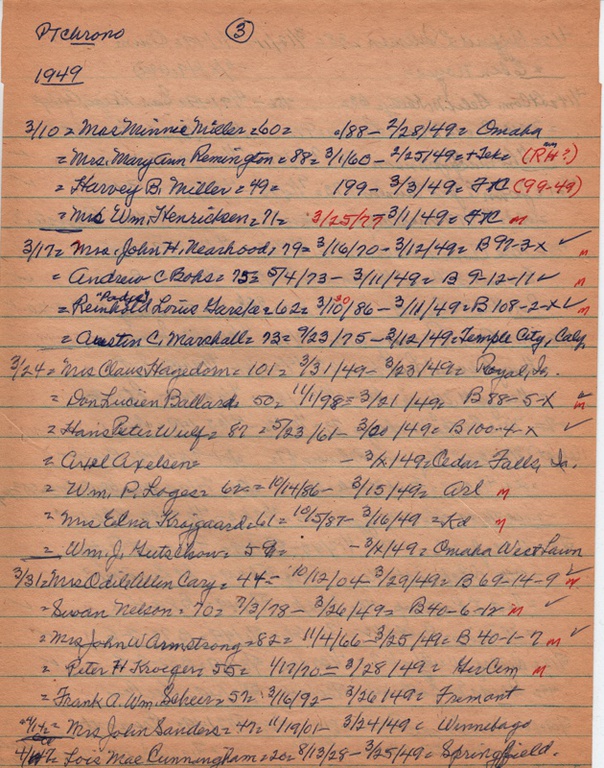 PT chrono ③
1949
3/10 = Mrs Minnie Miller = 60 = /88 - 2/28/49 = Omaha
= Mrs. Mary Ann Remington = 88 = 3/1/60 - 2/25/49 = + Tek = (RH?)
= Harvey B. Miller = 49 = 199 - 3/3/49 = (99-49)
= Mrs Wm. Henricksen = 71 = 3/25/77 3/1/49 = m
3/17 = Mrs. John H. Nearhood, 79 = 3/16/70 - 3/12/49 = B 97-3-x ✓ m
= Andrew C Boks = 75 = 5/4/73 - 3/11/49 = B 9-12-11 ✓ m
= Reinhold "Podge" Louis = 62 = 3/10/86 - 3/11/49 = B 108-2-x ✓ m
= Austin C. Marshall = 73 = 9/23/75 - 3/12/49 = Temple City, Calif
3/24 = Mrs Claus Hagedorn = 101 = 3/31/49 - 3/23/49 = Royal, Ia.
= Don Lucien Ballard = 50 = 11/1/98 = 3/21/49 = B 88-5-x ✓ m
= Hans Peter Wulf = 87 = 5/23/61 - 3/20/49 = B 100-4-x ✓
= Axel Axelsen = - 3/x/49 = Cedar Falls, Ia.
= Wm. P. Loges = 62 = 10/14/86 - 3/15/49 = Arl m
= Mrs Edna Krojgaard = 61 = 10/5/87 - 3/16/49 = Kd m
= Wm. J. Gutschow = 59 = - 3/x/49 = Omaha West Lawn
3/31 = Mrs Odile Allen Cary = 44 = 10/12/04 - 3/29/49 = B 69-14-9 ✓ m
= Susan Nelson = 70 = 7/3/78 - 3/26/49 = B 40-6-12 m ✓
= Mrs John W Armstrong = 82 = 11/4/66 - 3/25/49 = B 40-1-7 m ✓
= Peter H Kroeger = 55 = 1/17/70 = 3/28/49 = Ger Cem m
= Frank A. Wm. Scheer = 57 = 3/16/92 - 3/26/49 = Fremont
= Mrs John Sanders = 47 = 11/19/01 - 3/24/49 = Winnebago
= Lois Mae Cunningham = 20 = 8/13/28 - 3/25/49 = Springfield.